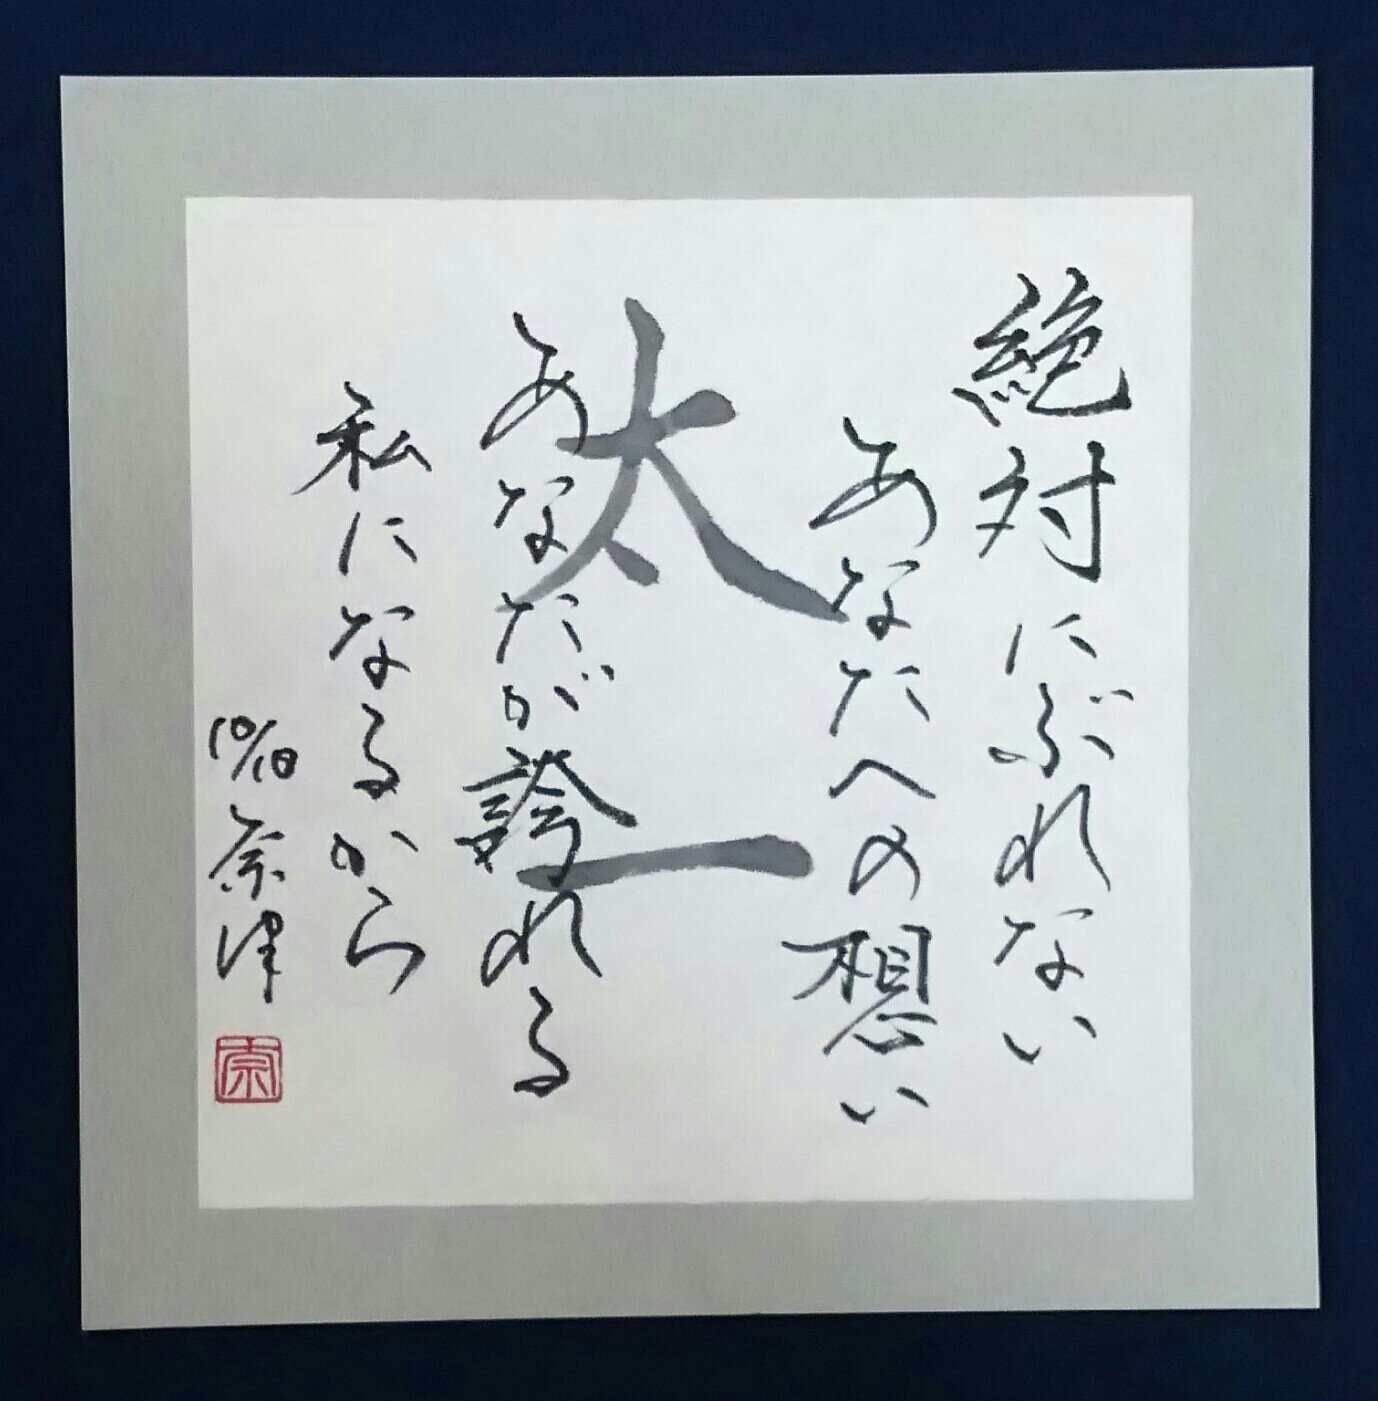 絶対にぶれない
あなたへの想い
太一
あなたが誇れる
私になるから
10/18 奈津
奈